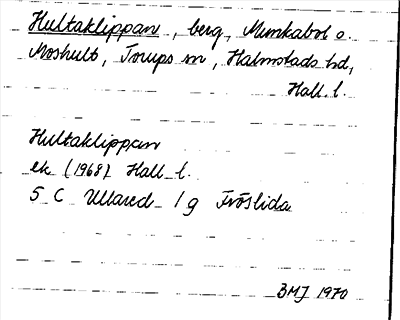 Hultaklippan, berg, Munkabol o.
Moshult, Torups sn, Halmstads hd,
Hall. l.
Hultaklippan
ek (1968) Hall l.
5 C Ullared 1 g Fröslida
BMJ 1970